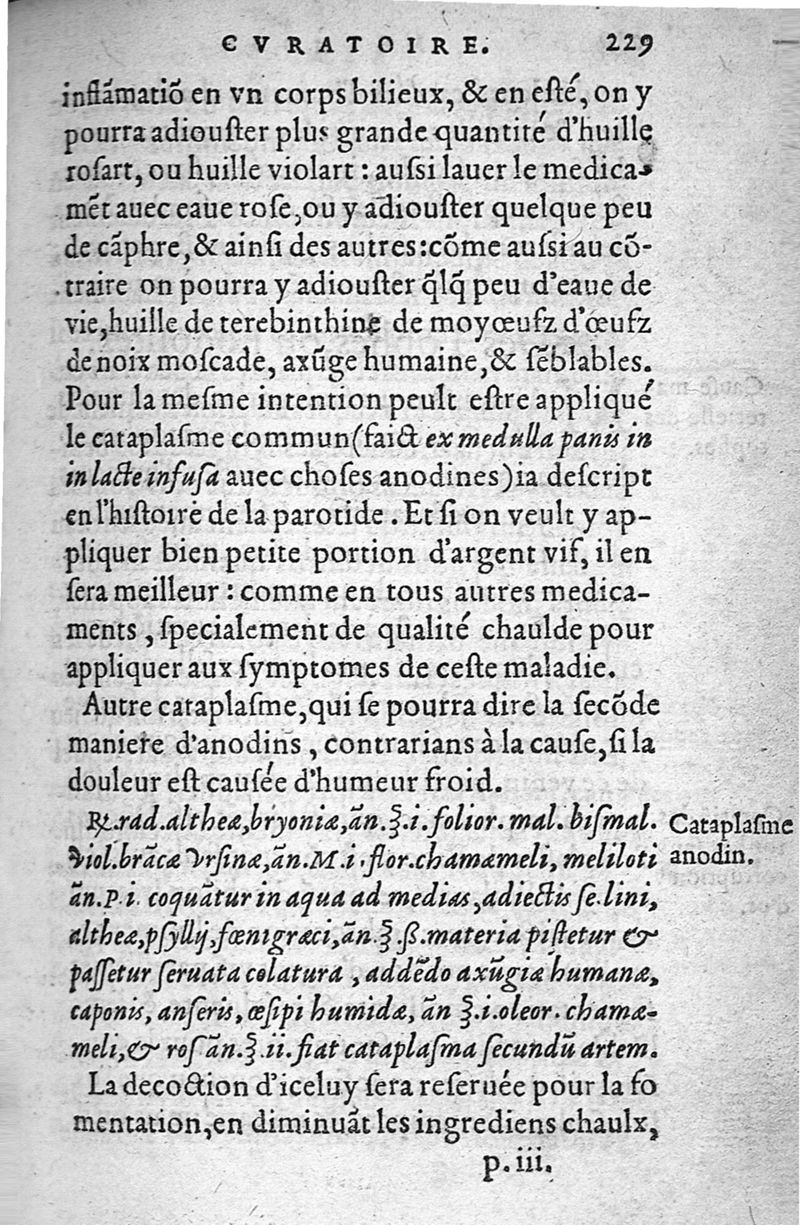 CVRATOIRE. 229
inflãmatiõ en vn corps bilieux, & en eſté, on y
pourra adiouſter plus grande quantité d'huille
roſart, ou huille violart : auſsi lauer le medica-
mẽt auec eaue roſe, ou y adiouſter quelque peu
de cãphre, & ainſi des autres: cõme auſsi au cõ-
traire on pourra y adiouſter q̃lq̃ peu d'eaue de
vie, huille de terebinthine de moyœufz d'œufz
de noix moſcade, axũge humaine, & ſẽblables.
Pour la meſme intention peult eſtre appliqué
le cataplaſme commun (faict ex medulla panis in
in lacte infuſa auec choſes anodines) ia deſcript
en l'hiſtoire de la parotide. Et ſi on veult y ap-
pliquer bien petite portion d'argent vif, il en
ſera meilleur : comme en tous autres medica-
ments, ſpecialement de qualité chaulde pour
appliquer aux ſymptomes de ceſte maladie.
Autre cataplaſme, qui ſe pourra dire la ſecõde
maniere d'anodins, contrarians à la cauſe, ſi la
douleur eſt cauſée d'humeur froid.
℞. rad. altheæ, bryoniæ, ãn. ℥. i. folior. mal. biſmal.
Viol. brãcæ Vrſinæ, ãn. M. i. flor. chamæmeli, meliloti
ãn. P. i. coquãtur in aqua ad medias, adiectis ſe. lini,
altheæ, pſyllij, fœnigræci, ãn. ℥. ß. materia piſtetur &
paſſetur ſeruata colatura, addẽdo axũgiæ humanæ,
caponis, anſeris, œſipi humidæ, ãn ℥. i. oleor. chamæ-
meli, & roſ ãn. ℥. ii. fiat cataplaſma ſecundũ artem.
Cataplaſme
anodin.
La decoction d'iceluy ſera reſeruée pour la fo
mentation, en diminuãt les ingrediens chaulx,
p. iii.